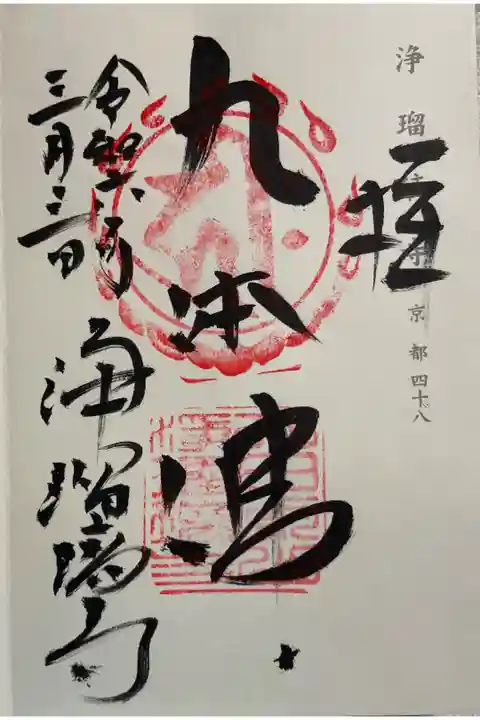 浄瑠璃寺 京都四十八
拝
九体佛
令和六年
三月三日
浄瑠璃寺